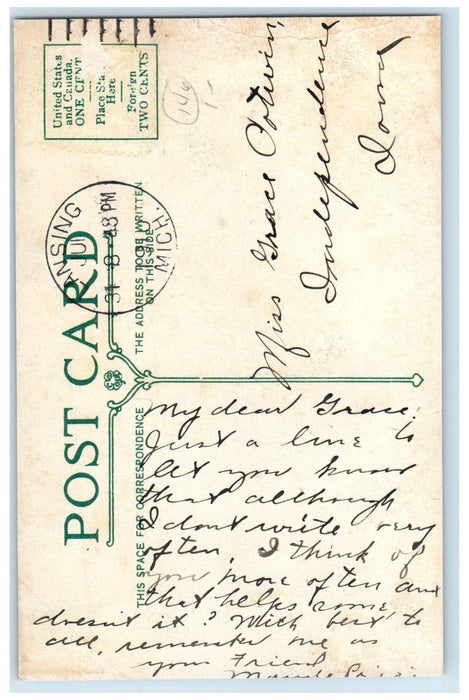 POST CARD
United States
and Canada.
ONE CENT
Place
Here
Foreign
TWO CENTS
146
1-
ANSING
MICH.
JUL
31
8 PM
THE ADDRESS TO BE WRITTEN
ON THIS SIDE
THIS SPACE FOR CORRESPONDENCE
Miss Grace Potwin,
Independence
Iowa
My dear Grace;
Just a line to
let you know
that although
I dont write very
often, I think of
you more often and
that helps some,
doesn't it? With best to
all, remember me as
your Friend
Maude